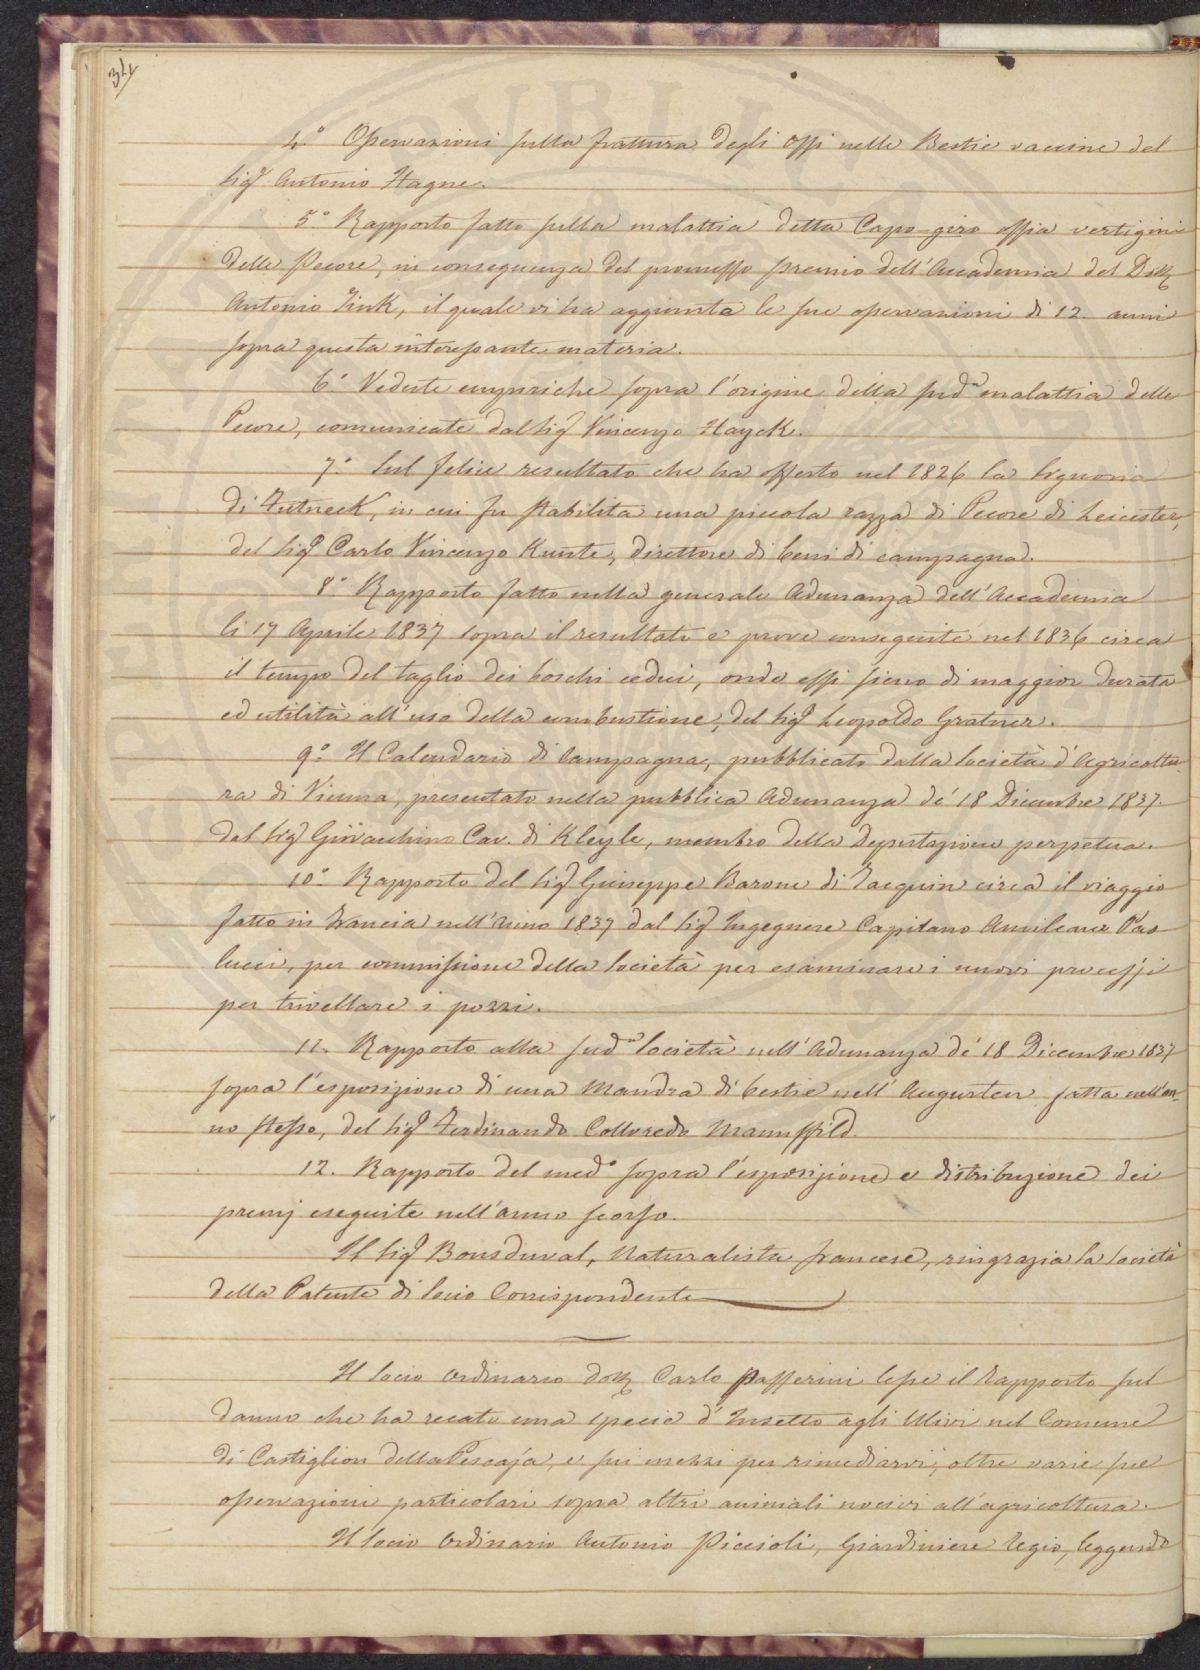 34
4.° Osservazioni sulla frattura degli ossi nelle Bestie vaccine del
Sig.r Antonio Hagne.
5.° Rapporto fatto sulla malattia detta Capo-giro ossia vertigini
delle Pecore, in conseguenza del promesso premio dell'Accademia del Dott.
Antonio Zink, il quale vi ha aggiunto le sue osservazioni di 12. anni
sopra questa interessante materia.
6.° Vedute empiriche sopra l'origine della sud.a malattia delle
Pecore, comunicate dal Sig.r Vincenzo Hayek.
7.° Sul felice resultato che ha offerto nel 1826 la Signoria
di , in cui fu stabilita una piccola razza di Pecore di Leicester,
del Sig.r Carlo Vincenzo Kunte, direttore di beni di campagna.
8.° Rapporto fatto nella generale Adunanza dell'Accademia
li 17 Aprile 1837 sopra il resultato e prove conseguite nel 1836 circa
il tempo del taglio dei boschi cedui, onde essi sieno di maggior durata
ed utilità all'uso della combustione, del Sig.r Leopoldo Gratner.
9.° Il Calendario di Campagna, pubblicato dalla Società d'Agricoltu-
ra di Vienna, presentato nella pubblica Adunanza de' 18 Dicembre 1837.
del Sig.r Giovacchino Cav. di Kleyle, membro della Deputazione perpetua.
10.° Rapporto del Sig.r Giuseppe Barone di Jacquin circa il viaggio
fatto in Francia nell'Anno 1837 dal Sig.r Ingegnere Capitano Amilcare Pao
lucci, per commissione della Società per esaminare i nuovi processi
per trivellare i pozzi.
11. Rapporto alla sud.a Società nell'Adunanza de' 18 Dicembre 1837
sopra l'esposizione di una Mandra di bestie nell'Augurten fatta nell'an-
no stesso, del Sig.r Ferdinando Colloredo Mannsfild.
12. Rapporto del med.o sopra l'esposizione e distribuzione dei
premj eseguite nell'anno scorso.
Il Sig.r Bousduval, Naturalista francese, ringrazia la Società
della Patente di Socio Corrispondente
Il Socio Ordinario Dott. Carlo Passerini lesse il Rapporto sul
danno che ha recato una specie d'Insetto agli Ulivi nel Comune
di Castiglion della Pescaja, e sui mezzi per rimediarvi, oltre varie sue
osservazioni particolari sopra altri animali nocivi all'agricoltura.
Il Socio Ordinario Antonio Piccioli, Giardiniere Regio, leggendo